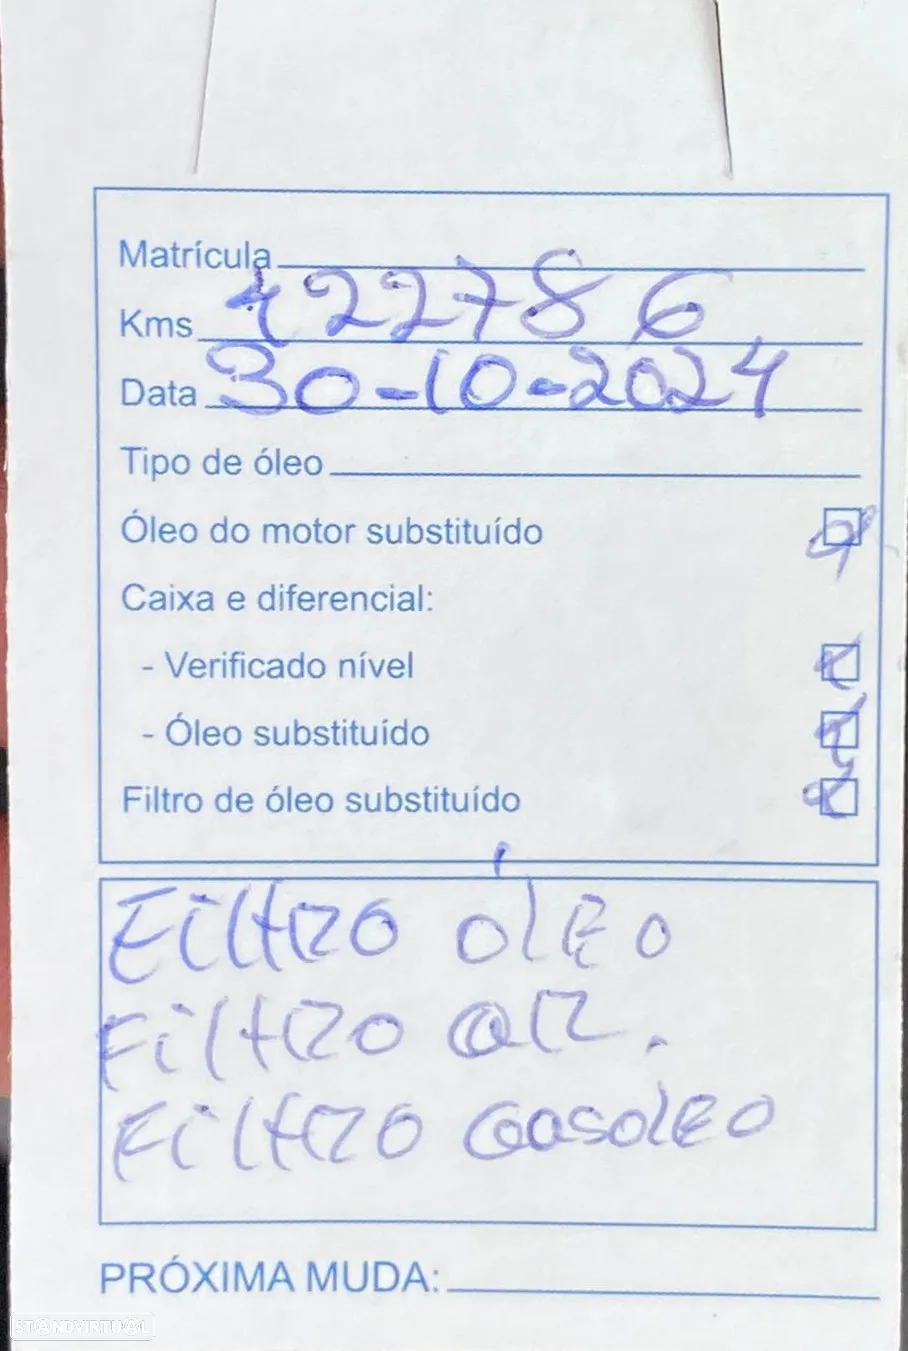 Matrícula
Kms 422786
Data 30-10-2024
Tipo de óleo
Óleo do motor substituído
Caixa e diferencial:
- Verificado nível
- Óleo substituído
Filtro de óleo substituído
Filtro óleo
Filtro ar.
Filtro Gasoleo
PRÓXIMA MUDA:
STANDVIRTUAL